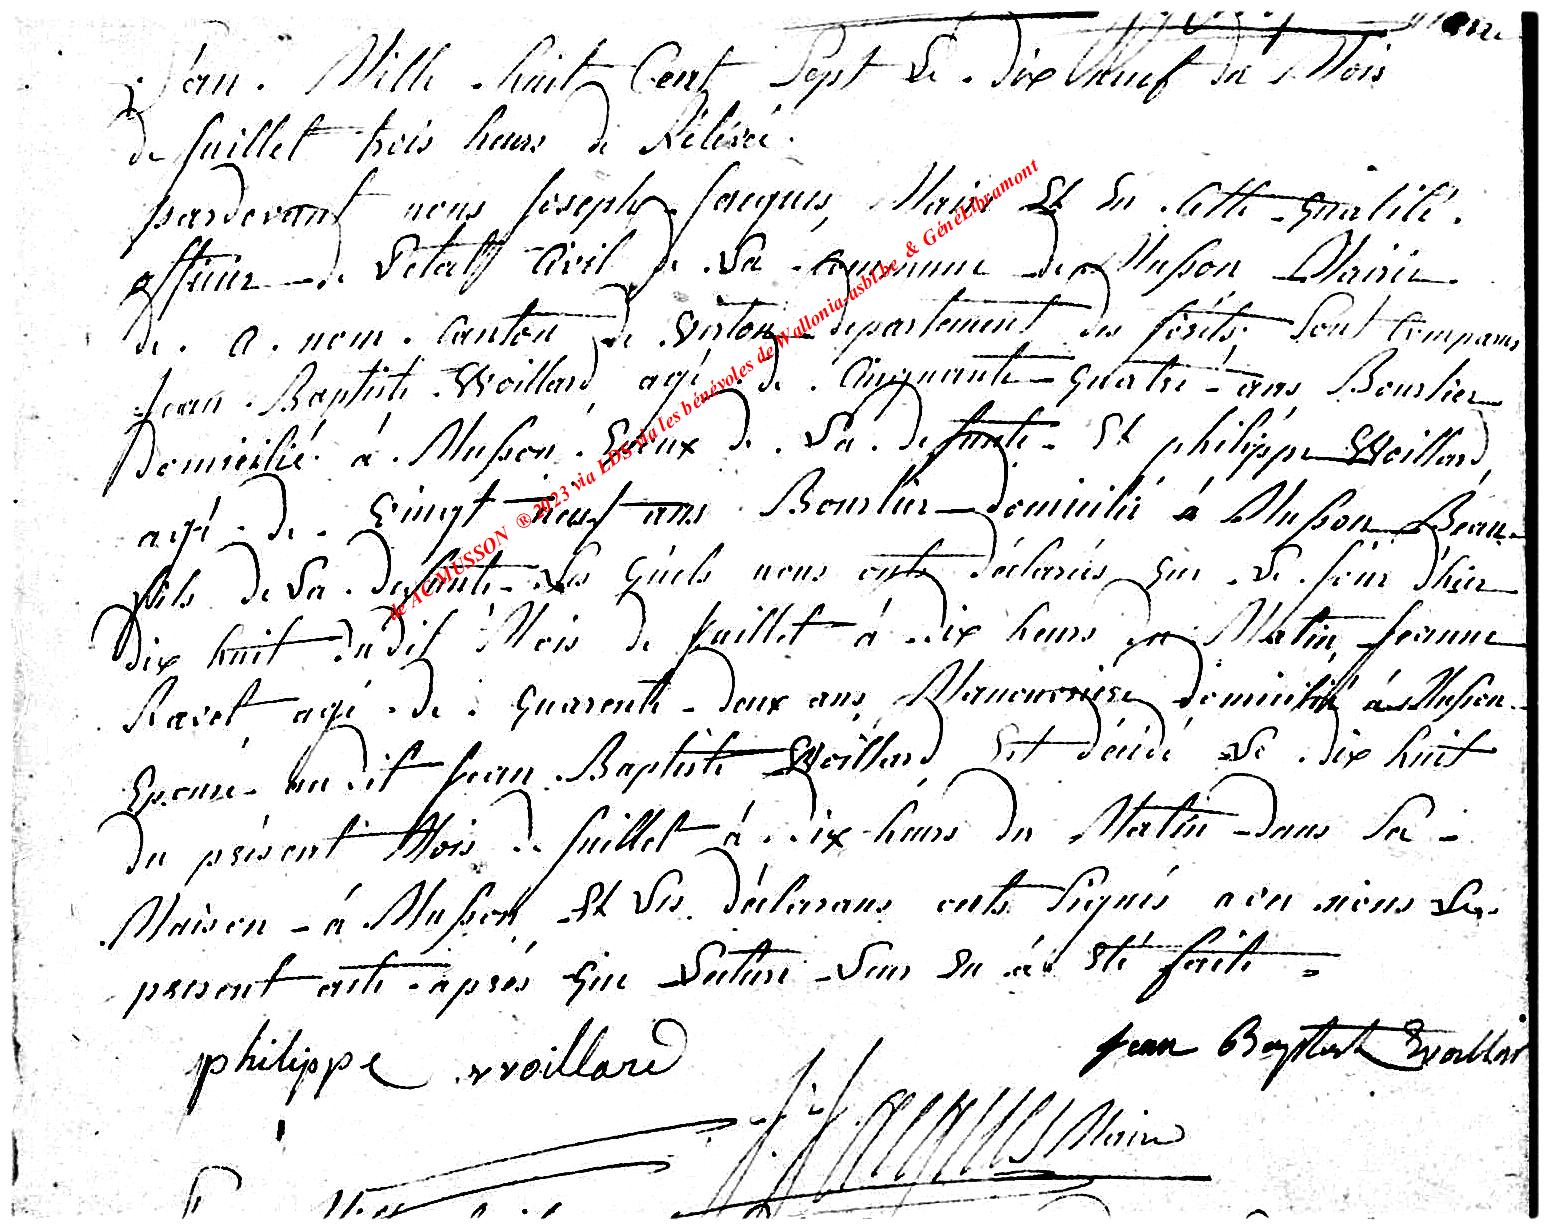 L'an Mille huit Cent Sept Le dix Neuf du Mois
de Juillet trois heurs de Rélévée.
pardevant nous Joseph Jacques, Maire Et En Cette qualité
officier de L'etat Civil de La Commune de Musson Mairie
de a nom Canton de Virton departement des forêts, Sont Comparus
Jean Baptiste Woillard agé de Cinquante quatre ans Bourlier
Domicilié à Musson Epoux de La defunte Et philippe Woillard
agé de Vingt neuf ans Bourlier domicilié à Musson Beau
fils de La defunte Les quels nous onts déclarés que Le Jour d'hier
dix huit dudit Mois de Juillet à dix heurs du Matin, Jeanne
Ravet agé de quarente deux ans, Manouvriere domicilié à Musson
Epouse du dit Jean Baptiste Woillard Est décédé Le dix huit
du présent Mois de Juillet à dix heurs du Matin dans Sa
Maison à Musson Et Les déclarans onts Signés avec nous Le
present acte après que Lecture Leur En à Eté faite
philippe woillard
Jean Baptiste Woillar
J. J. Jacques Maire
de ACMUSSON ® 2023 via LDS via les bénévoles de Wallonia-asbl.be & GénéLibramont